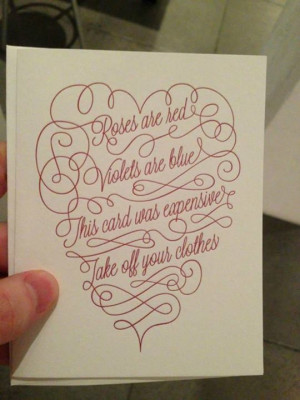 Roses are red
Violets are blue
This card was expensive
Take off your clothes